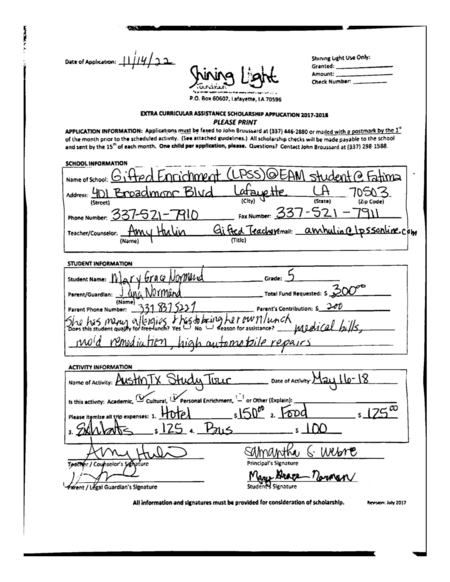 Date of Application: 11/14/22
Shining Light Use Only:
Granted:
Amount:
Check Number:
Shining Light
Foundation
P.O. Box 60602, Lafayette, LA 70596
EXTRA CURRICULAR ASSISTANCE SCHOLARSHIP APPLICATION 2017-2018
PLEASE PRINT
APPLICATION INFORMATION: Applications must be faxed to John Broussard at (337) 446-2880 or mailed with a postmark by the 1st
of the month prior to the scheduled activity. (See attached guidelines.) All scholarship checks will be made payable to the school
and sent by the 15th of each month. One child per application, please. Questions? Contact John Broussard at (337) 298-1588.
SCHOOL INFORMATION
Name of School: Gifted Enrichment (LPSS)@EAM student @ Fatima
Address: 401 Broadmoor Blvd Lafayette, LA 70503
(Street) (City) (State) (Zip Code)
Phone Number: 337-521-7910 Fax Number: 337-521-7911
Teacher/Counselor: Amy Hulin Gifted Teacher Email: amhulin@lpssonline.com
(Name) (Title)
STUDENT INFORMATION
Student Name: Mary Grace Normand Grade: 5
Parent/Guardian: Normand Total Fund Requested: $ 300.00
(Name)
Parent Phone Number: Parent's Contribution: $ 200
She has many allergies & has to bring her own lunch
Does this student qualify for free-lunch? Yes No Reason for assistance? medical bills,
mold remediation, high automobile repairs
ACTIVITY INFORMATION
Name of Activity: Austin, TX Study Tour Date of Activity May 16-18
Is this activity: Academic, Cultural, Personal Enrichment, or Other (Explain):
Please itemize all trip expenses: 1. Hotel $ 150.00 2. Food $ 175.00
3. Exhibits $ 125 4. Bus $ 100
Amy Hulin Samantha S. Webre
Teacher / Counselor's Signature Principal's Signature
Mary Grace Norman
Parent / Legal Guardian's Signature Student's Signature
All information and signatures must be provided for consideration of scholarship. Revision: July 2017